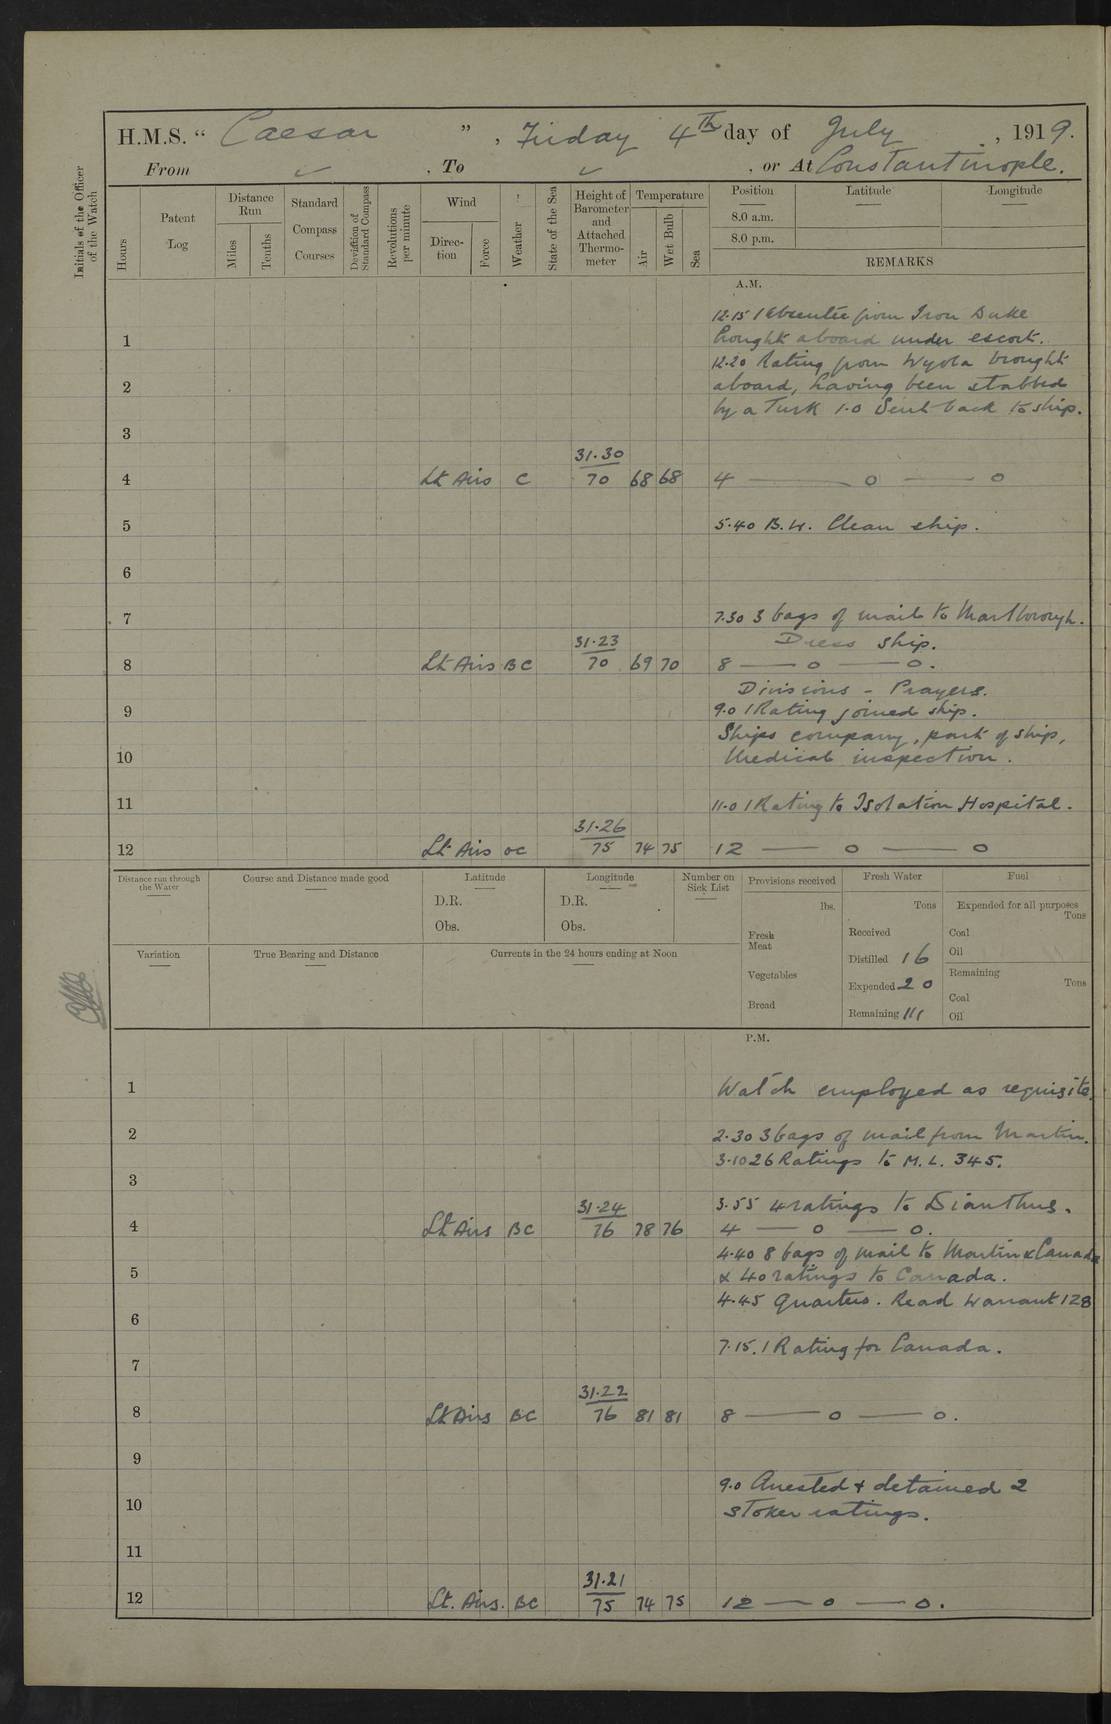 H.M.S. “ Caesar ” , Friday 4th day of July , 1919.
From ✓ , To ✓ , or At Constantinople.
Initials of the Officer of the Watch
Hours
Patent Log
Distance Run
Miles
Tenths
Standard Compass Courses
Deviation of Standard Compass
Revolutions per minute
Wind
Direction
Force
Weather
State of the Sea
Height of Barometer and Attached Thermometer
Temperature
Air
Wet Bulb
Sea
Position
Latitude
Longitude
8.0 a.m.
8.0 p.m.
REMARKS
A.M.
12.15 1 Absentee from Iron Duke
1 brought aboard under escort.
12.20 Rating from Wyola brought
2 aboard, having been stabbed
by a Turk 1.0 Sent back to ship.
3
31.30
4 Lt Airs C 70 68 68 4 — o — o
5 5.40 B.W. Clean ship.
6
7 7.30 3 bags of mail to Marlborough.
31.23 Dress Ship.
8 Lt Airs BC 70 69 70 8 — o — o.
Divisions – Prayers.
9 9.0 1 Rating joined ship.
Ships company, part of ship,
10 Medical inspection.
11 11.0 1 Rating to Isolation Hospital.
31.26
12 Lt Airs oc 75 74 75 12 — o — o
Distance run through the Water
Course and Distance made good
Latitude
D.R.
Obs.
Longitude
D.R.
Obs.
Number on Sick List
Provisions received
lbs.
Fresh Meat
Vegetables
Bread
Fresh Water
Tons
Received
Distilled 16
Expended 20
Remaining 111
Fuel
Expended for all purposes
Tons
Coal
Oil
Remaining
Tons
Coal
Oil
Variation
True Bearing and Distance
Currents in the 24 hours ending at Noon
P.M.
1 Watch employed as requisite.
2 2.30 3 bags of mail from Martin.
3.10 26 Ratings to M.L. 345.
3
31.24 3.55 4 ratings to Dianthus.
4 Lt Airs BC 76 78 76 4 — o — o.
4.40 8 bags of mail to Martin & Canada
5 & 40 ratings to Canada.
4.45 Quarters. Read Warrant 128
6
7.15. 1 Rating for Canada.
7
31.22
8 Lt Airs BC 76 81 81 8 — o — o.
9
9.0 Arrested & detained 2
10 stoker ratings.
11
31.21
12 Lt. Airs. BC 75 74 75 12 — o — o.